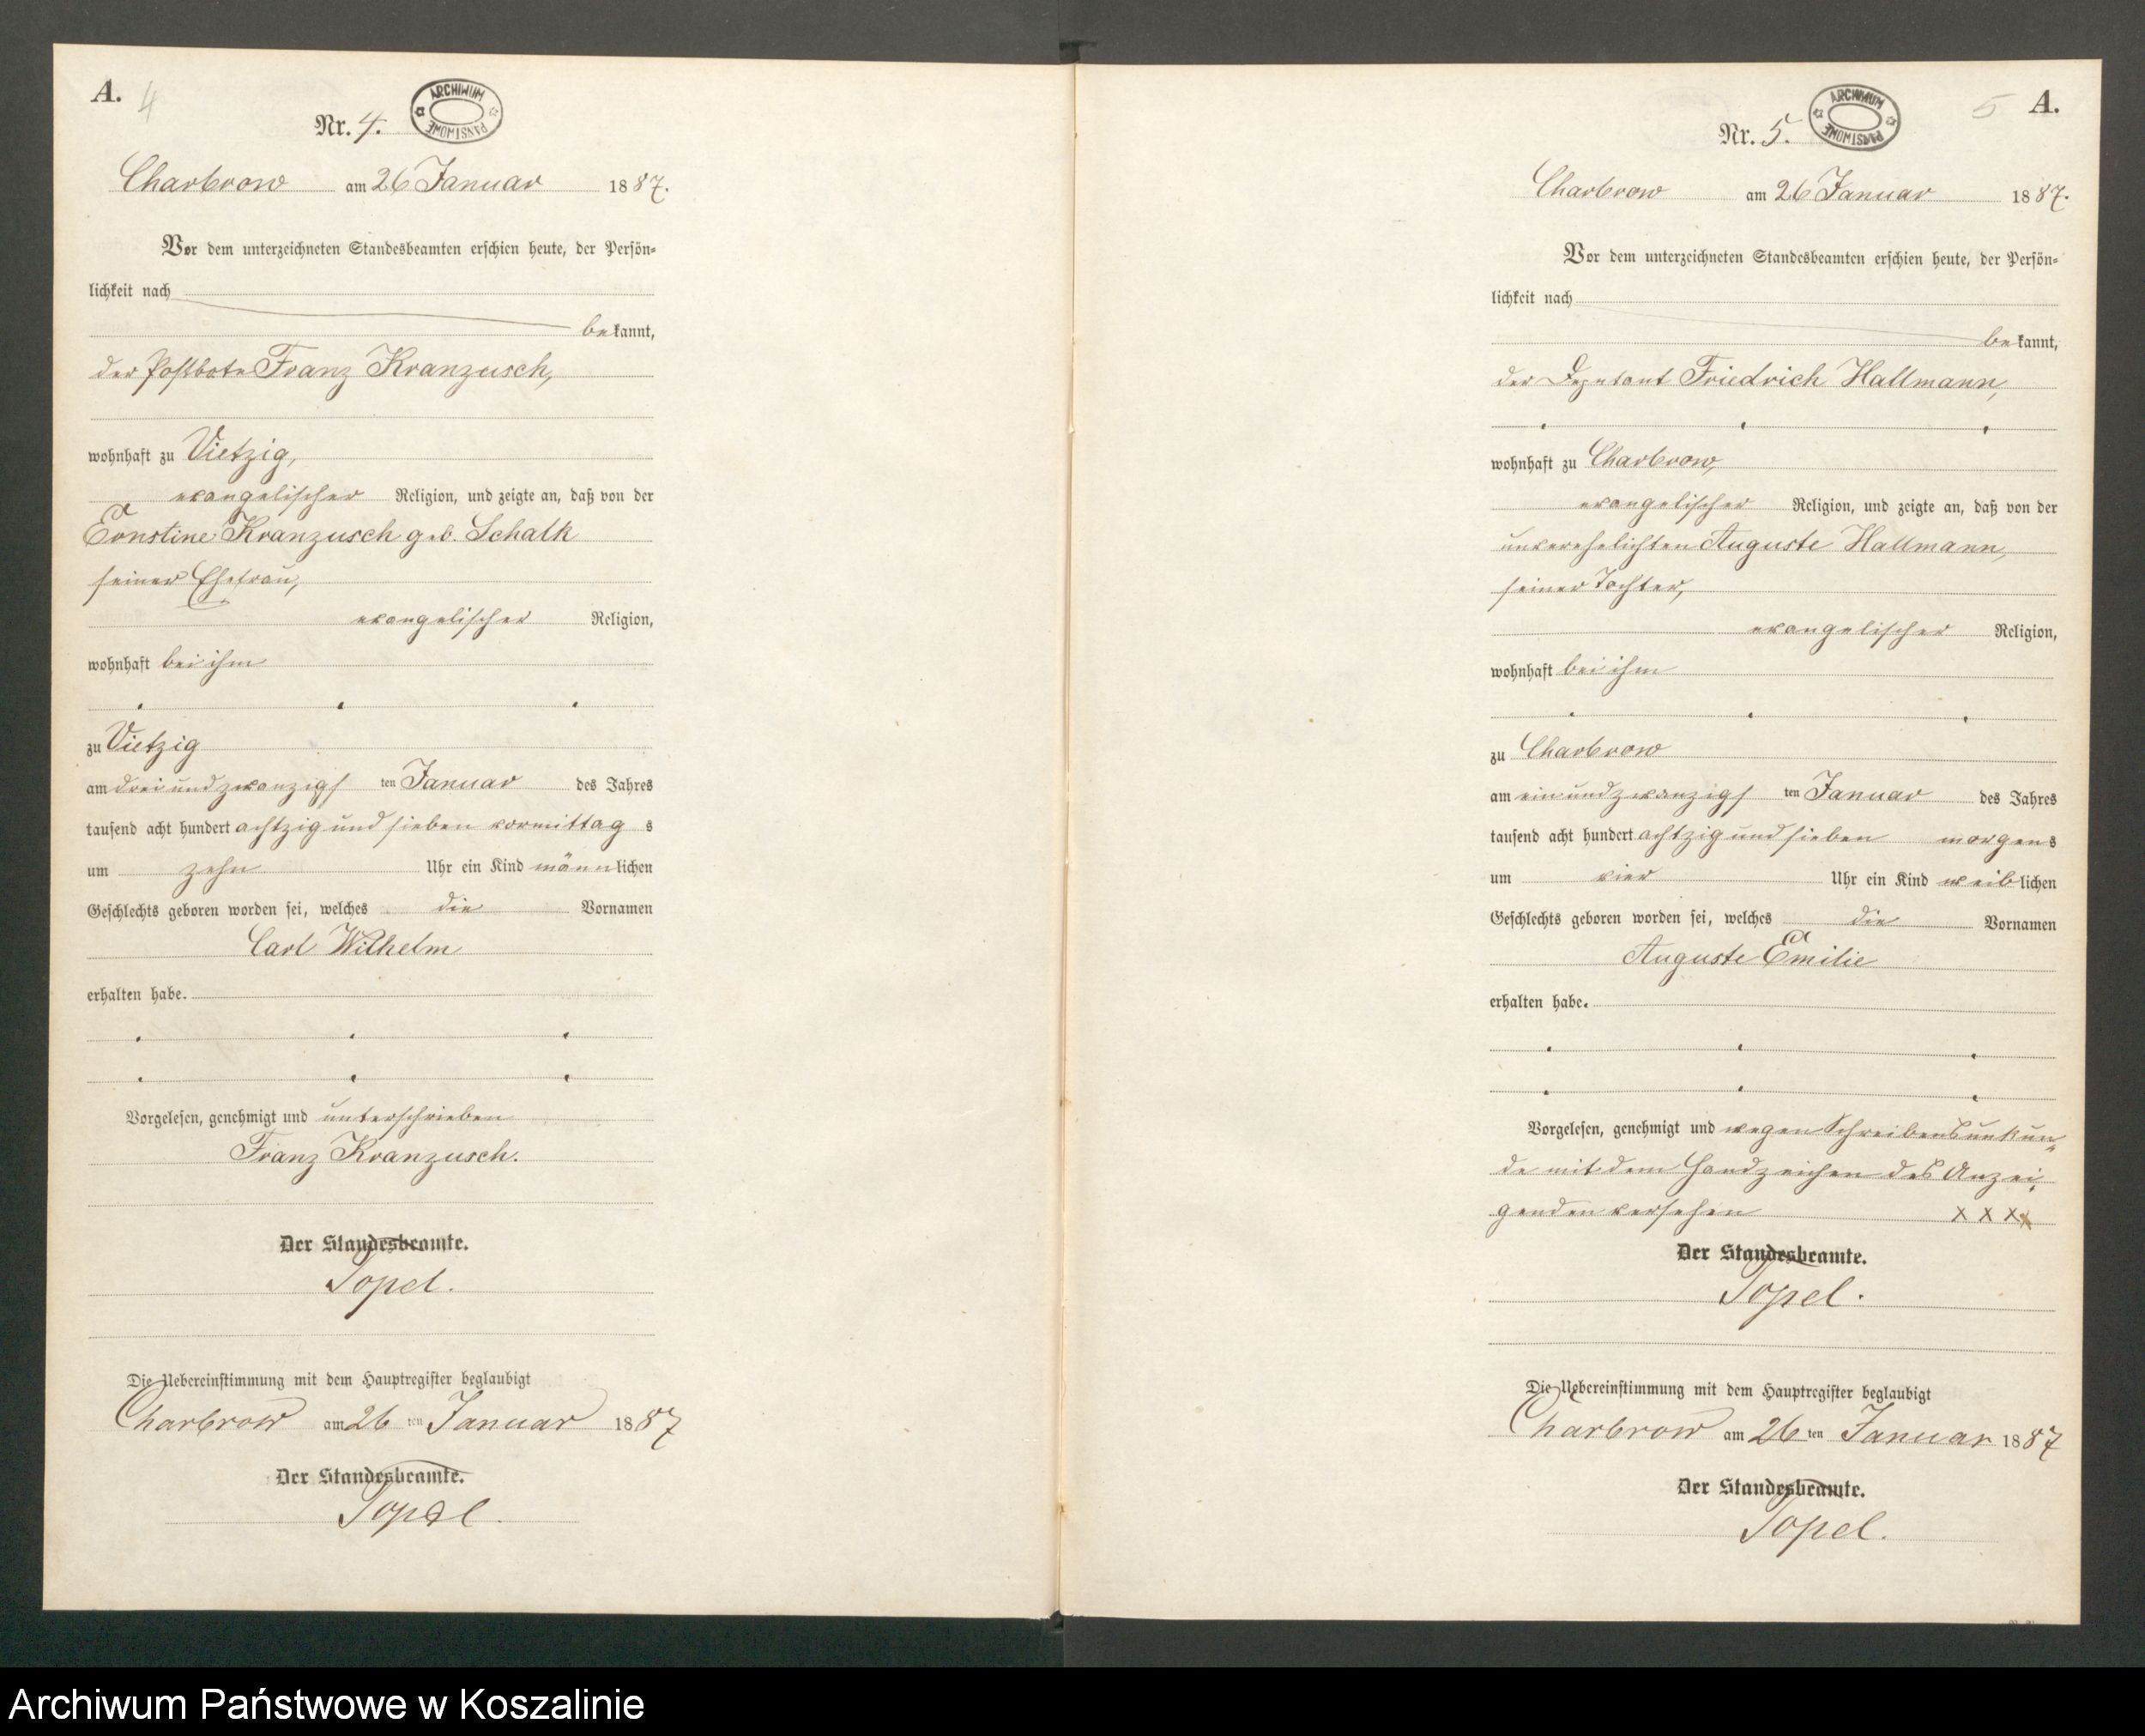 A. 4
ARCHIWUM PAŃSTWOWE
Nr. 4.
Charbrow am 26 Januar 1887.
Vor dem unterzeichneten Standesbeamten erschien heute, der Persön-
lichkeit nach
bekannt,
der Postbote Franz Kranzusch,
wohnhaft zu Vietzig,
evangelischer Religion, und zeigte an, daß von der
Ernstine Kranzusch geb. Schalk
seiner Ehefrau,
evangelischer Religion,
wohnhaft bei ihm
zu Vietzig
am dreiundzwanzigsten Januar des Jahres
tausend acht hundert achtzig und sieben vormittags
um zehn Uhr ein Kind männlichen
Geschlechts geboren worden sei, welches die Vornamen
Carl Wilhelm
erhalten habe.
Vorgelesen, genehmigt und unterschrieben
Franz Kranzusch.
Der Standesbeamte.
Topel.
Die Uebereinstimmung mit dem Hauptregister beglaubigt
Charbrow am 26 ten Januar 1887
Der Standesbeamte.
Topel.
5 A.
ARCHIWUM PAŃSTWOWE
Nr. 5.
Charbrow am 26 Januar 1887.
Vor dem unterzeichneten Standesbeamten erschien heute, der Persön-
lichkeit nach
bekannt,
der Deputant Friedrich Hallmann,
wohnhaft zu Charbrow,
evangelischer Religion, und zeigte an, daß von der
unverehelichten Auguste Hallmann,
seiner Tochter,
evangelischer Religion,
wohnhaft bei ihm
zu Charbrow
am einundzwanzigsten Januar des Jahres
tausend acht hundert achtzig und sieben morgens
um vier Uhr ein Kind weiblichen
Geschlechts geboren worden sei, welches die Vornamen
Auguste Emilie
erhalten habe.
Vorgelesen, genehmigt und wegen Schreibensunkun-
de mit dem Handzeichen des Anzei-
genden versehen X X X
Der Standesbeamte.
Topel.
Die Uebereinstimmung mit dem Hauptregister beglaubigt
Charbrow am 26 ten Januar 1887
Der Standesbeamte.
Topel.
Archiwum Państwowe w Koszalinie